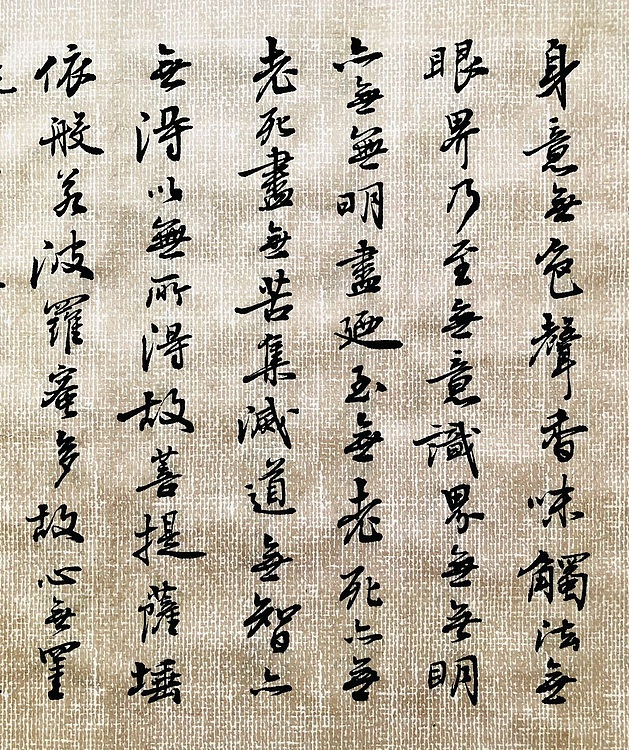 身意無色聲香味觸法無
眼界乃至無意識界無無明
亦無無明盡廼至無老死亦無
老死盡無苦集滅道無智亦
無得以無所得故菩提薩埵
依般若波羅蜜多故心無罣